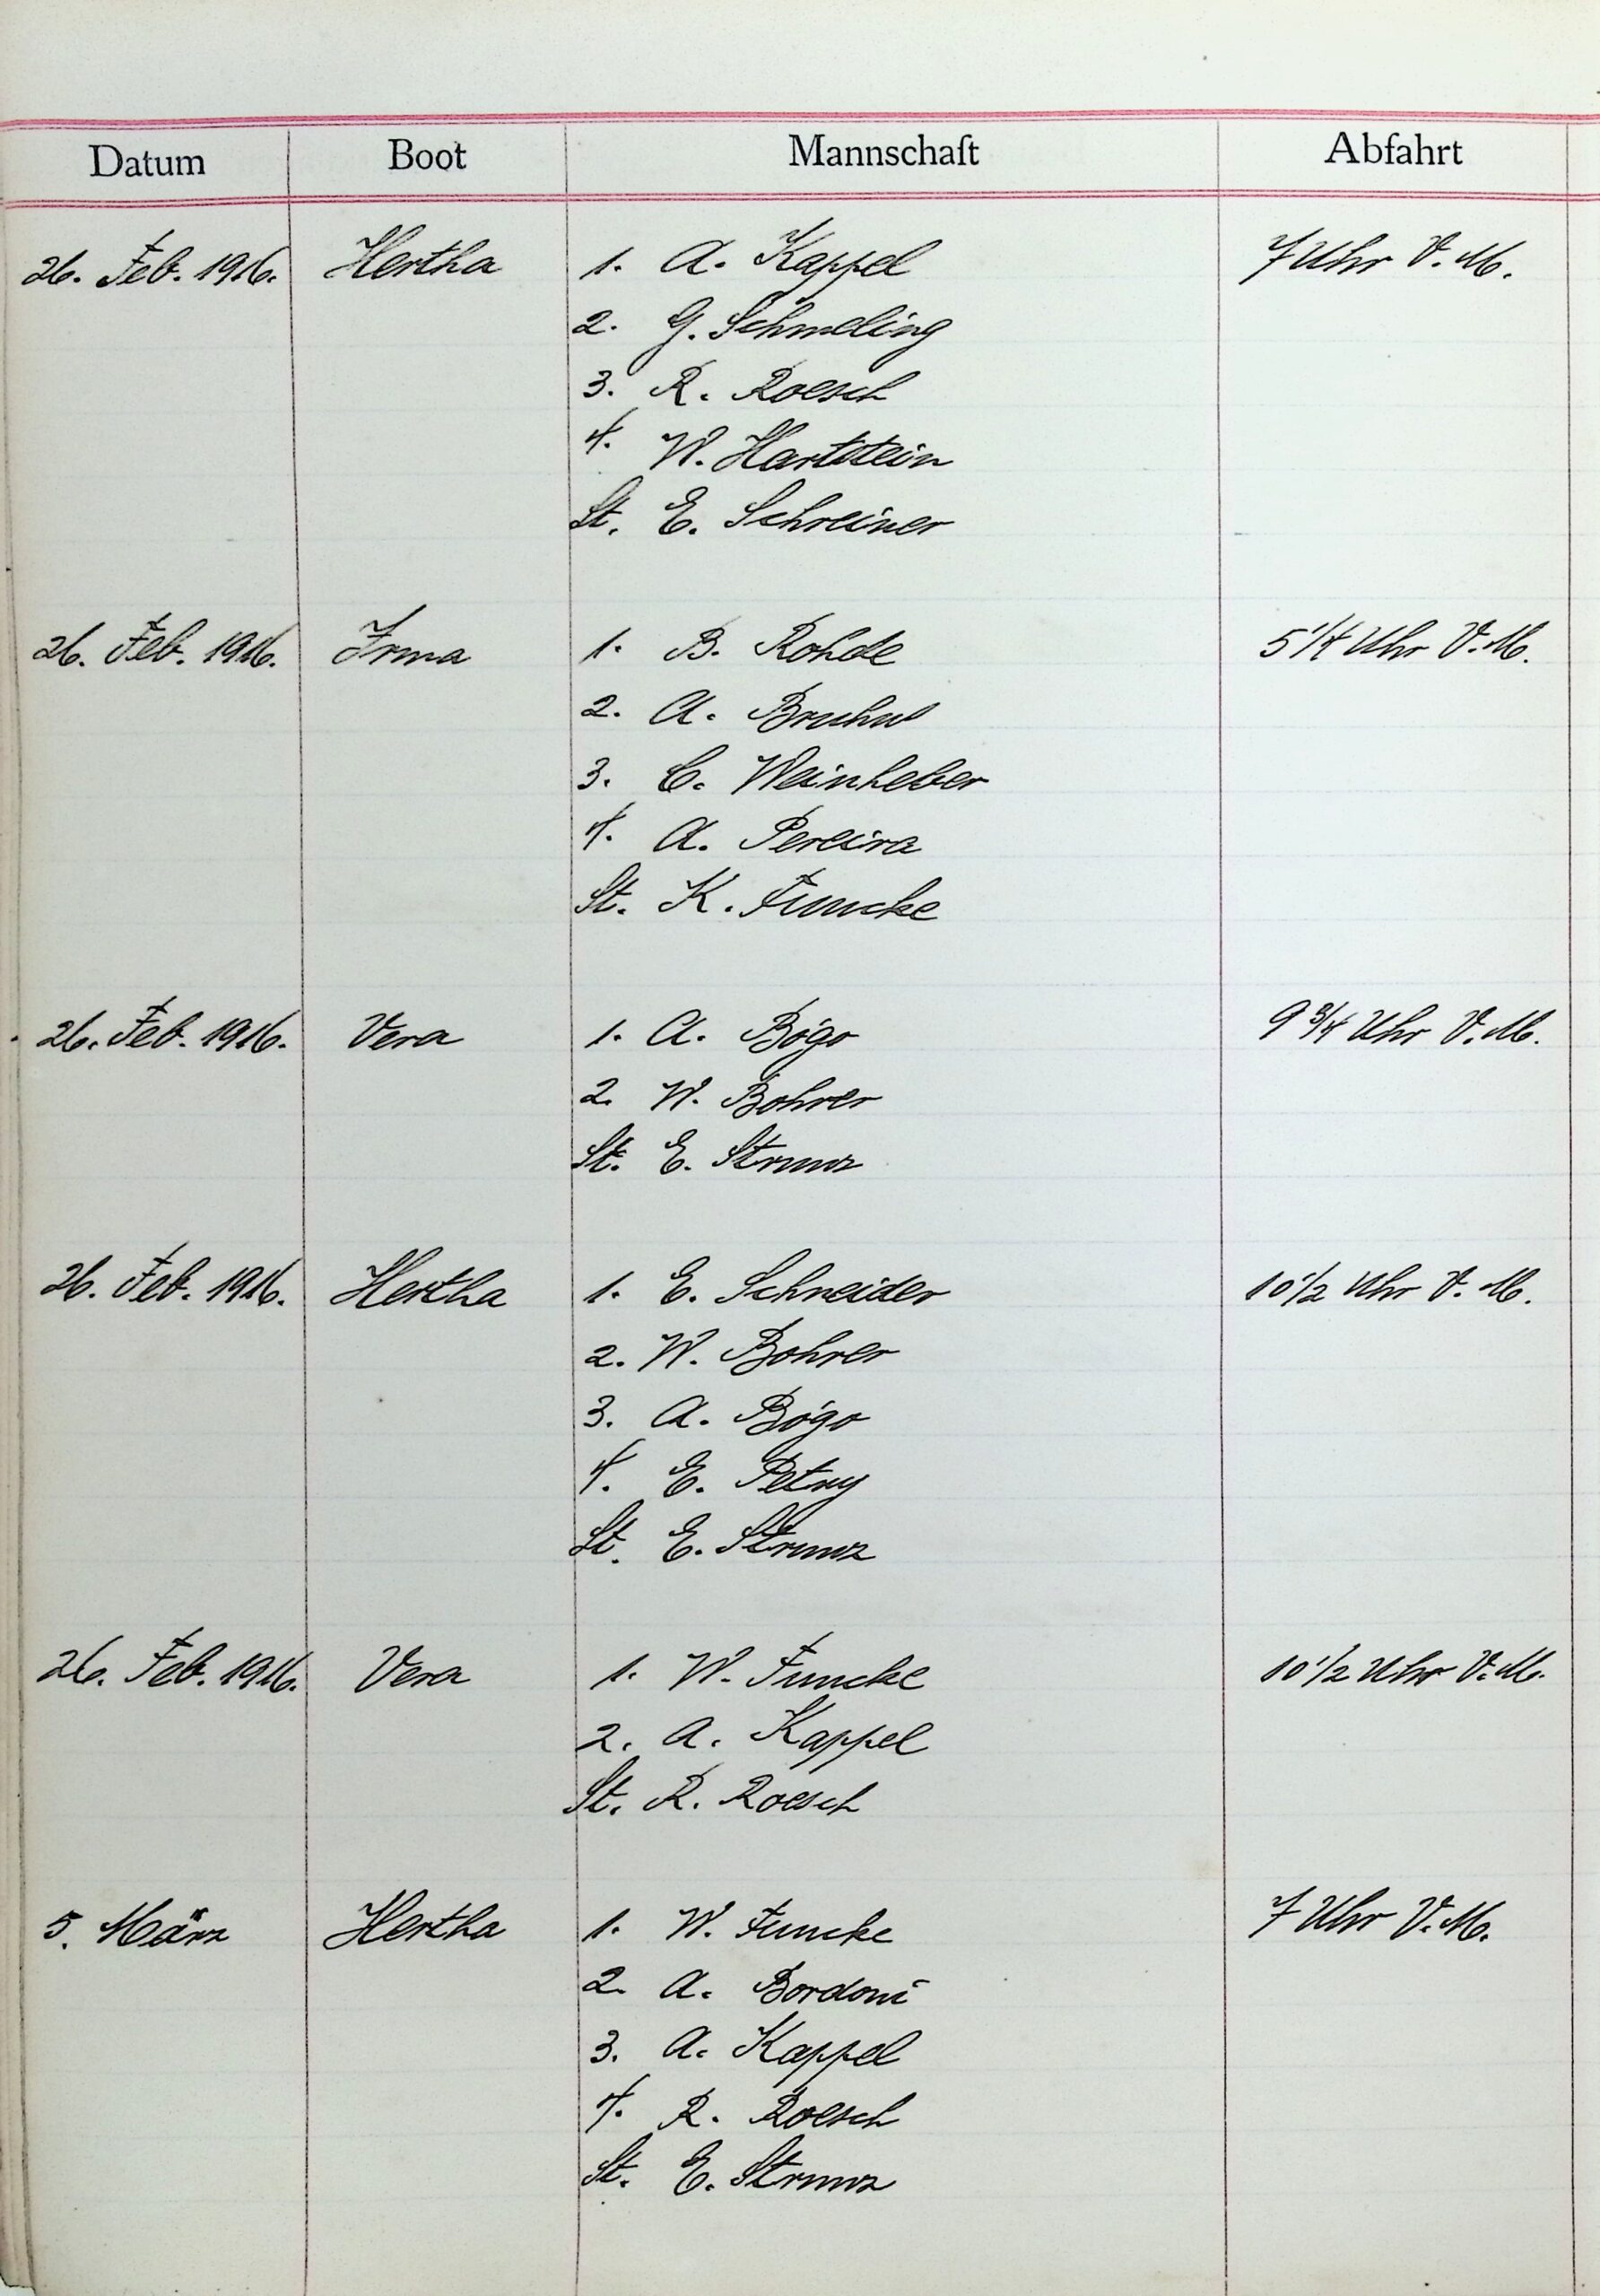 Datum Boot Mannschaft Abfahrt
26. Feb. 1916. Hertha 1. A. Kappel 7 Uhr V. M.
2. G. Schmeling
3. R. Roesch
4. W. Hartstein
St. E. Schreiner
26. Feb. 1916. Irma 1. B. Rohde 5 1/4 Uhr V. M.
2. A. Bruhns
3. C. Weinheber
4. A. Pereira
St. K. Funcke
26. Feb. 1916. Vera 1. A. Bógo 9 3/4 Uhr V. M.
2. W. Bohrer
St. E. Strunz
26. Feb. 1916. Hertha 1. E. Schneider 10 1/2 Uhr V. M.
2. W. Bohrer
3. A. Bógo
4. E. Petry
St. E. Strunz
26. Feb. 1916. Vera 1. W. Funcke 10 1/2 Uhr V. M.
2. A. Kappel
St. R. Roesch
5. März Hertha 1. W. Funcke 7 Uhr V. M.
2. A. Bordoni
3. A. Kappel
4. R. Roesch
St. E. Strunz